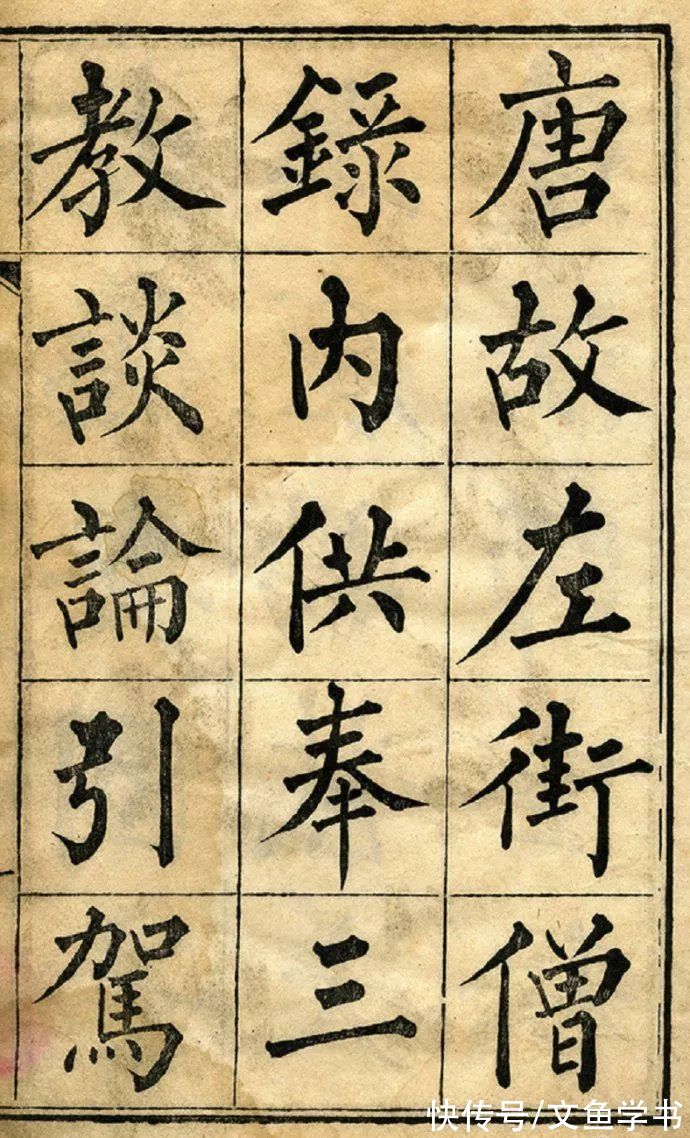 唐故左街僧
錄内供奉三
教談論引駕
快传号/文鱼学书